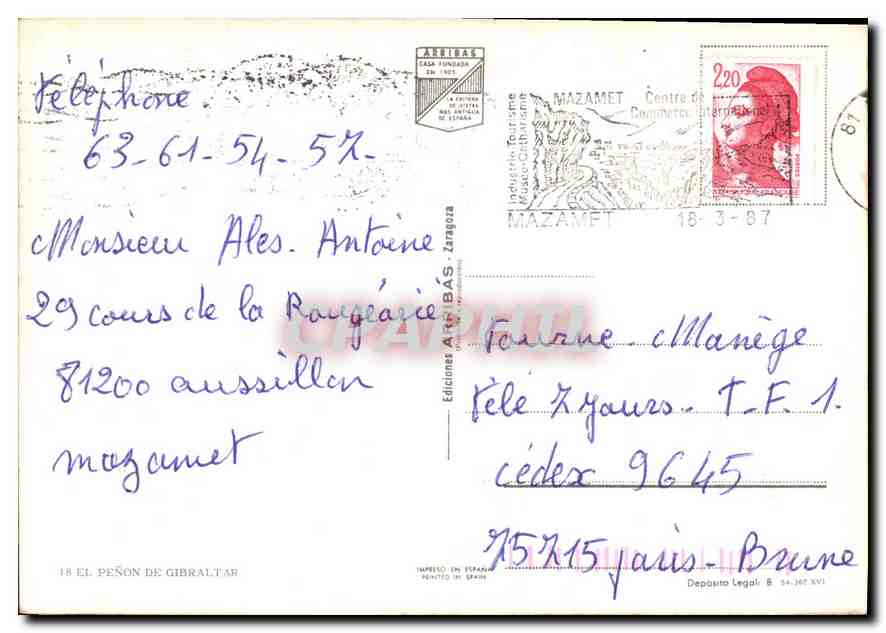 Téléphone.
63-61-54-57-
Monsieur Ales. Antoine
29 cours de la Rougéarié
81200 aussillon
mazamet
18 EL PEÑON DE GIBRALTAR
ARRIBAS
CASA FUNDADA
EN 1905
LA EDITORA
DE VISTAS
MAS ANTIGUA
DE ESPAÑA
Ediciones ARRIBAS - Zaragoza
IMPRESO EN ESPAÑA
PRINTED IN SPAIN
Industrie-Tourisme
Musée-Catharisme
MAZAMET Centre de
Commerce International
MAZAMET 18-3-87
2,20
81
Tourne. Manège
Télé 7 jours. T.F.1.
cédex 9645
75715 paris-Brune
Deposito Legal: B. 54-367 XVI
CPAPHIL